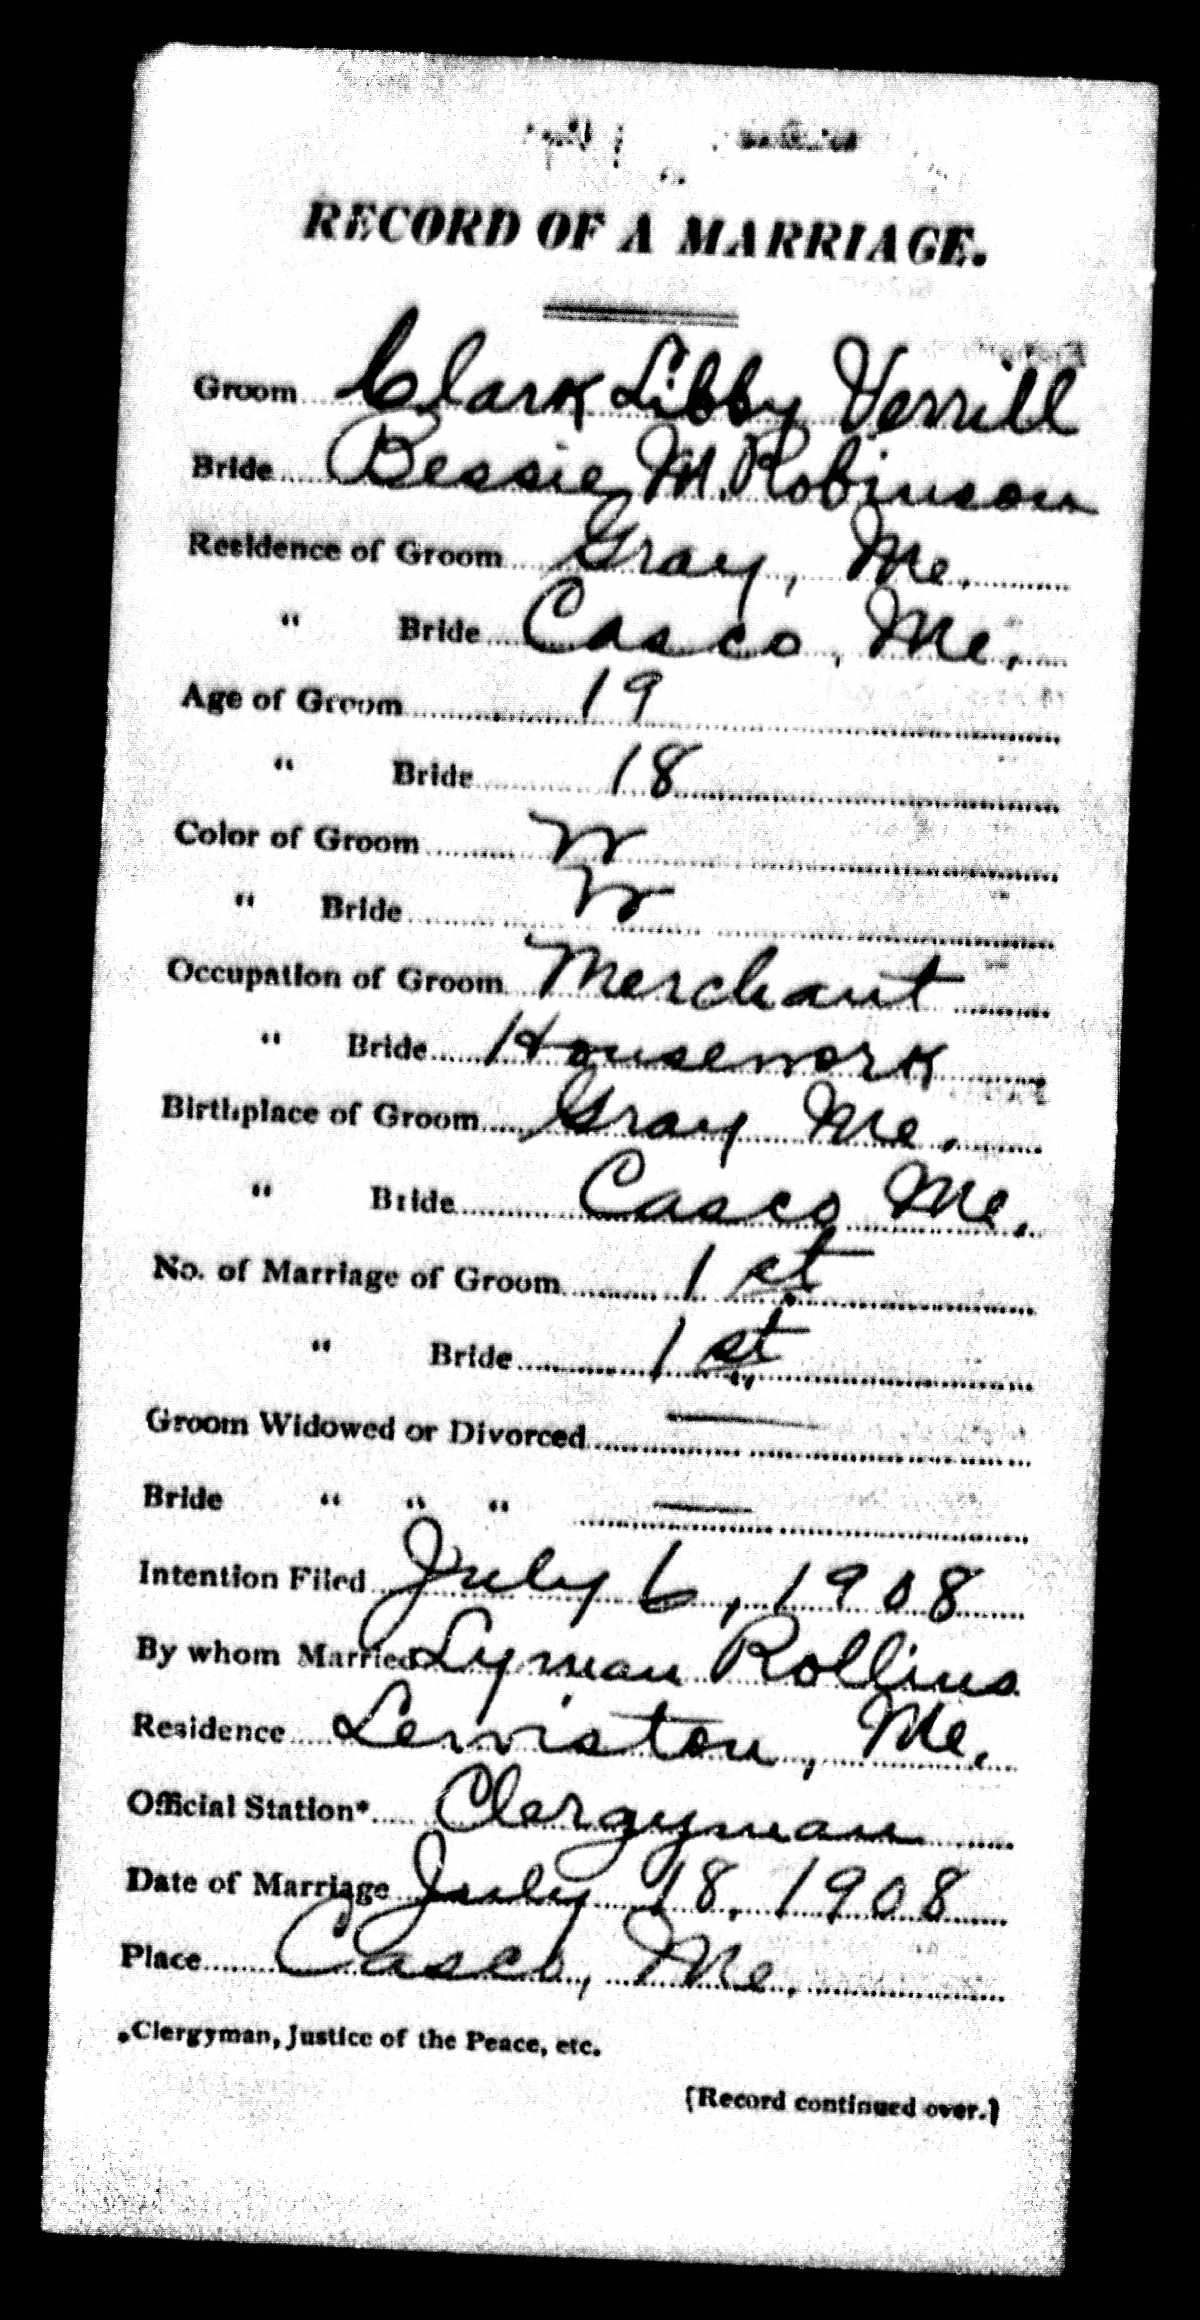 RECORD OF A MARRIAGE.
Groom Clark Libby Verrill
Bride Bessie M. Robinson
Residence of Groom Gray, Me.
" Bride Casco, Me.
Age of Groom 19
" Bride 18
Color of Groom W
" Bride W
Occupation of Groom Merchant
" Bride Housework
Birthplace of Groom Gray Me.
" Bride Casco Me.
No. of Marriage of Groom 1st
" Bride 1st
Groom Widowed or Divorced —
Bride " " " —
Intention Filed July 6, 1908
By whom Married Lyman Rollins
Residence Lewiston, Me.
Official Station* Clergyman
Date of Marriage July 18, 1908
Place Casco, Me.
*Clergyman, Justice of the Peace, etc.
[Record continued over.]